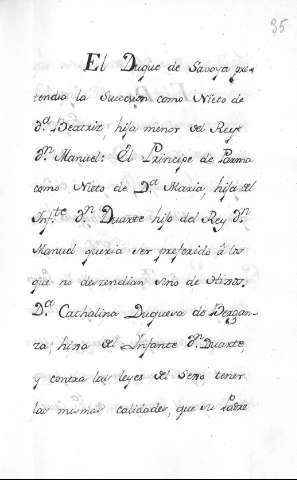 35
El Duque de Savoya pre-
tendia la Succesion como Nieto de
D.ª Beatriz, hija menor del Rey
D.n Manuel: El Principe de Parma
como Nieto de D.ª Maria, hija del
Inf.te D.n Duarte hijo del Rey D.n
Manuel queria ser preferido á los
que no descendian sino de
D.ª Cathalina Duquesa de Bergan-
za, hija del Infante D.n Duarte,
y contra las leyes del Sexo tener
las mismas calidades, que su Padre